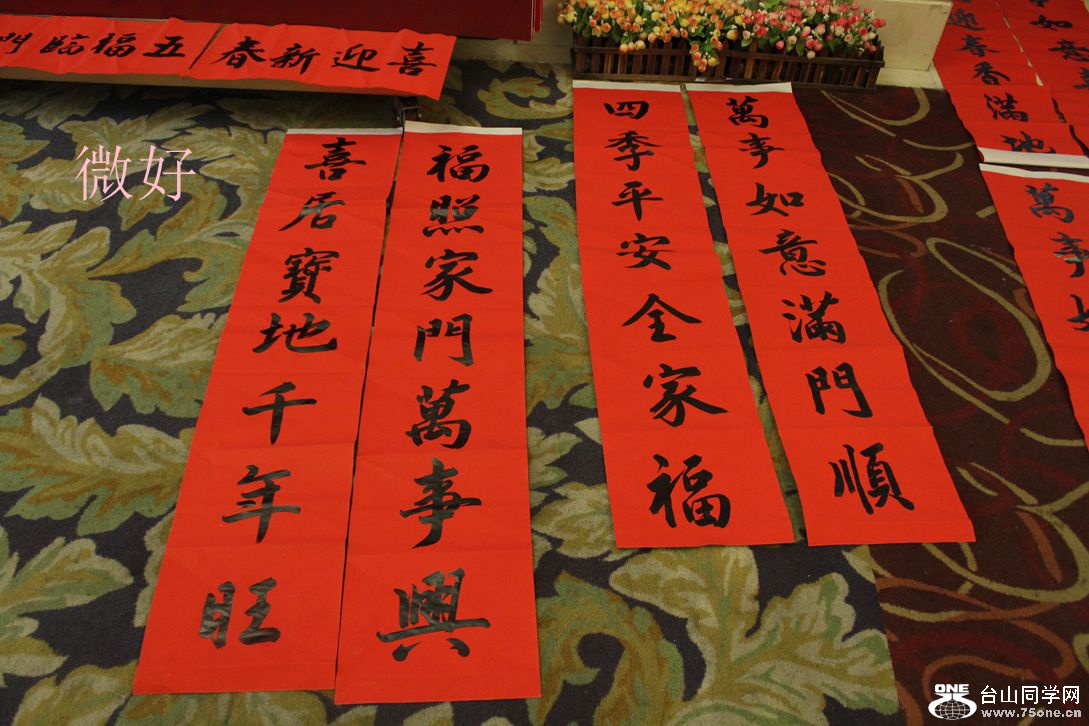 喜迎新春
五福臨門
微好
福照家門萬事興
喜居寶地千年旺
萬事如意滿門順
四季平安全家福
迎春香滿地
如意
萬事如
ONE
台山同学网
www.75one.cn